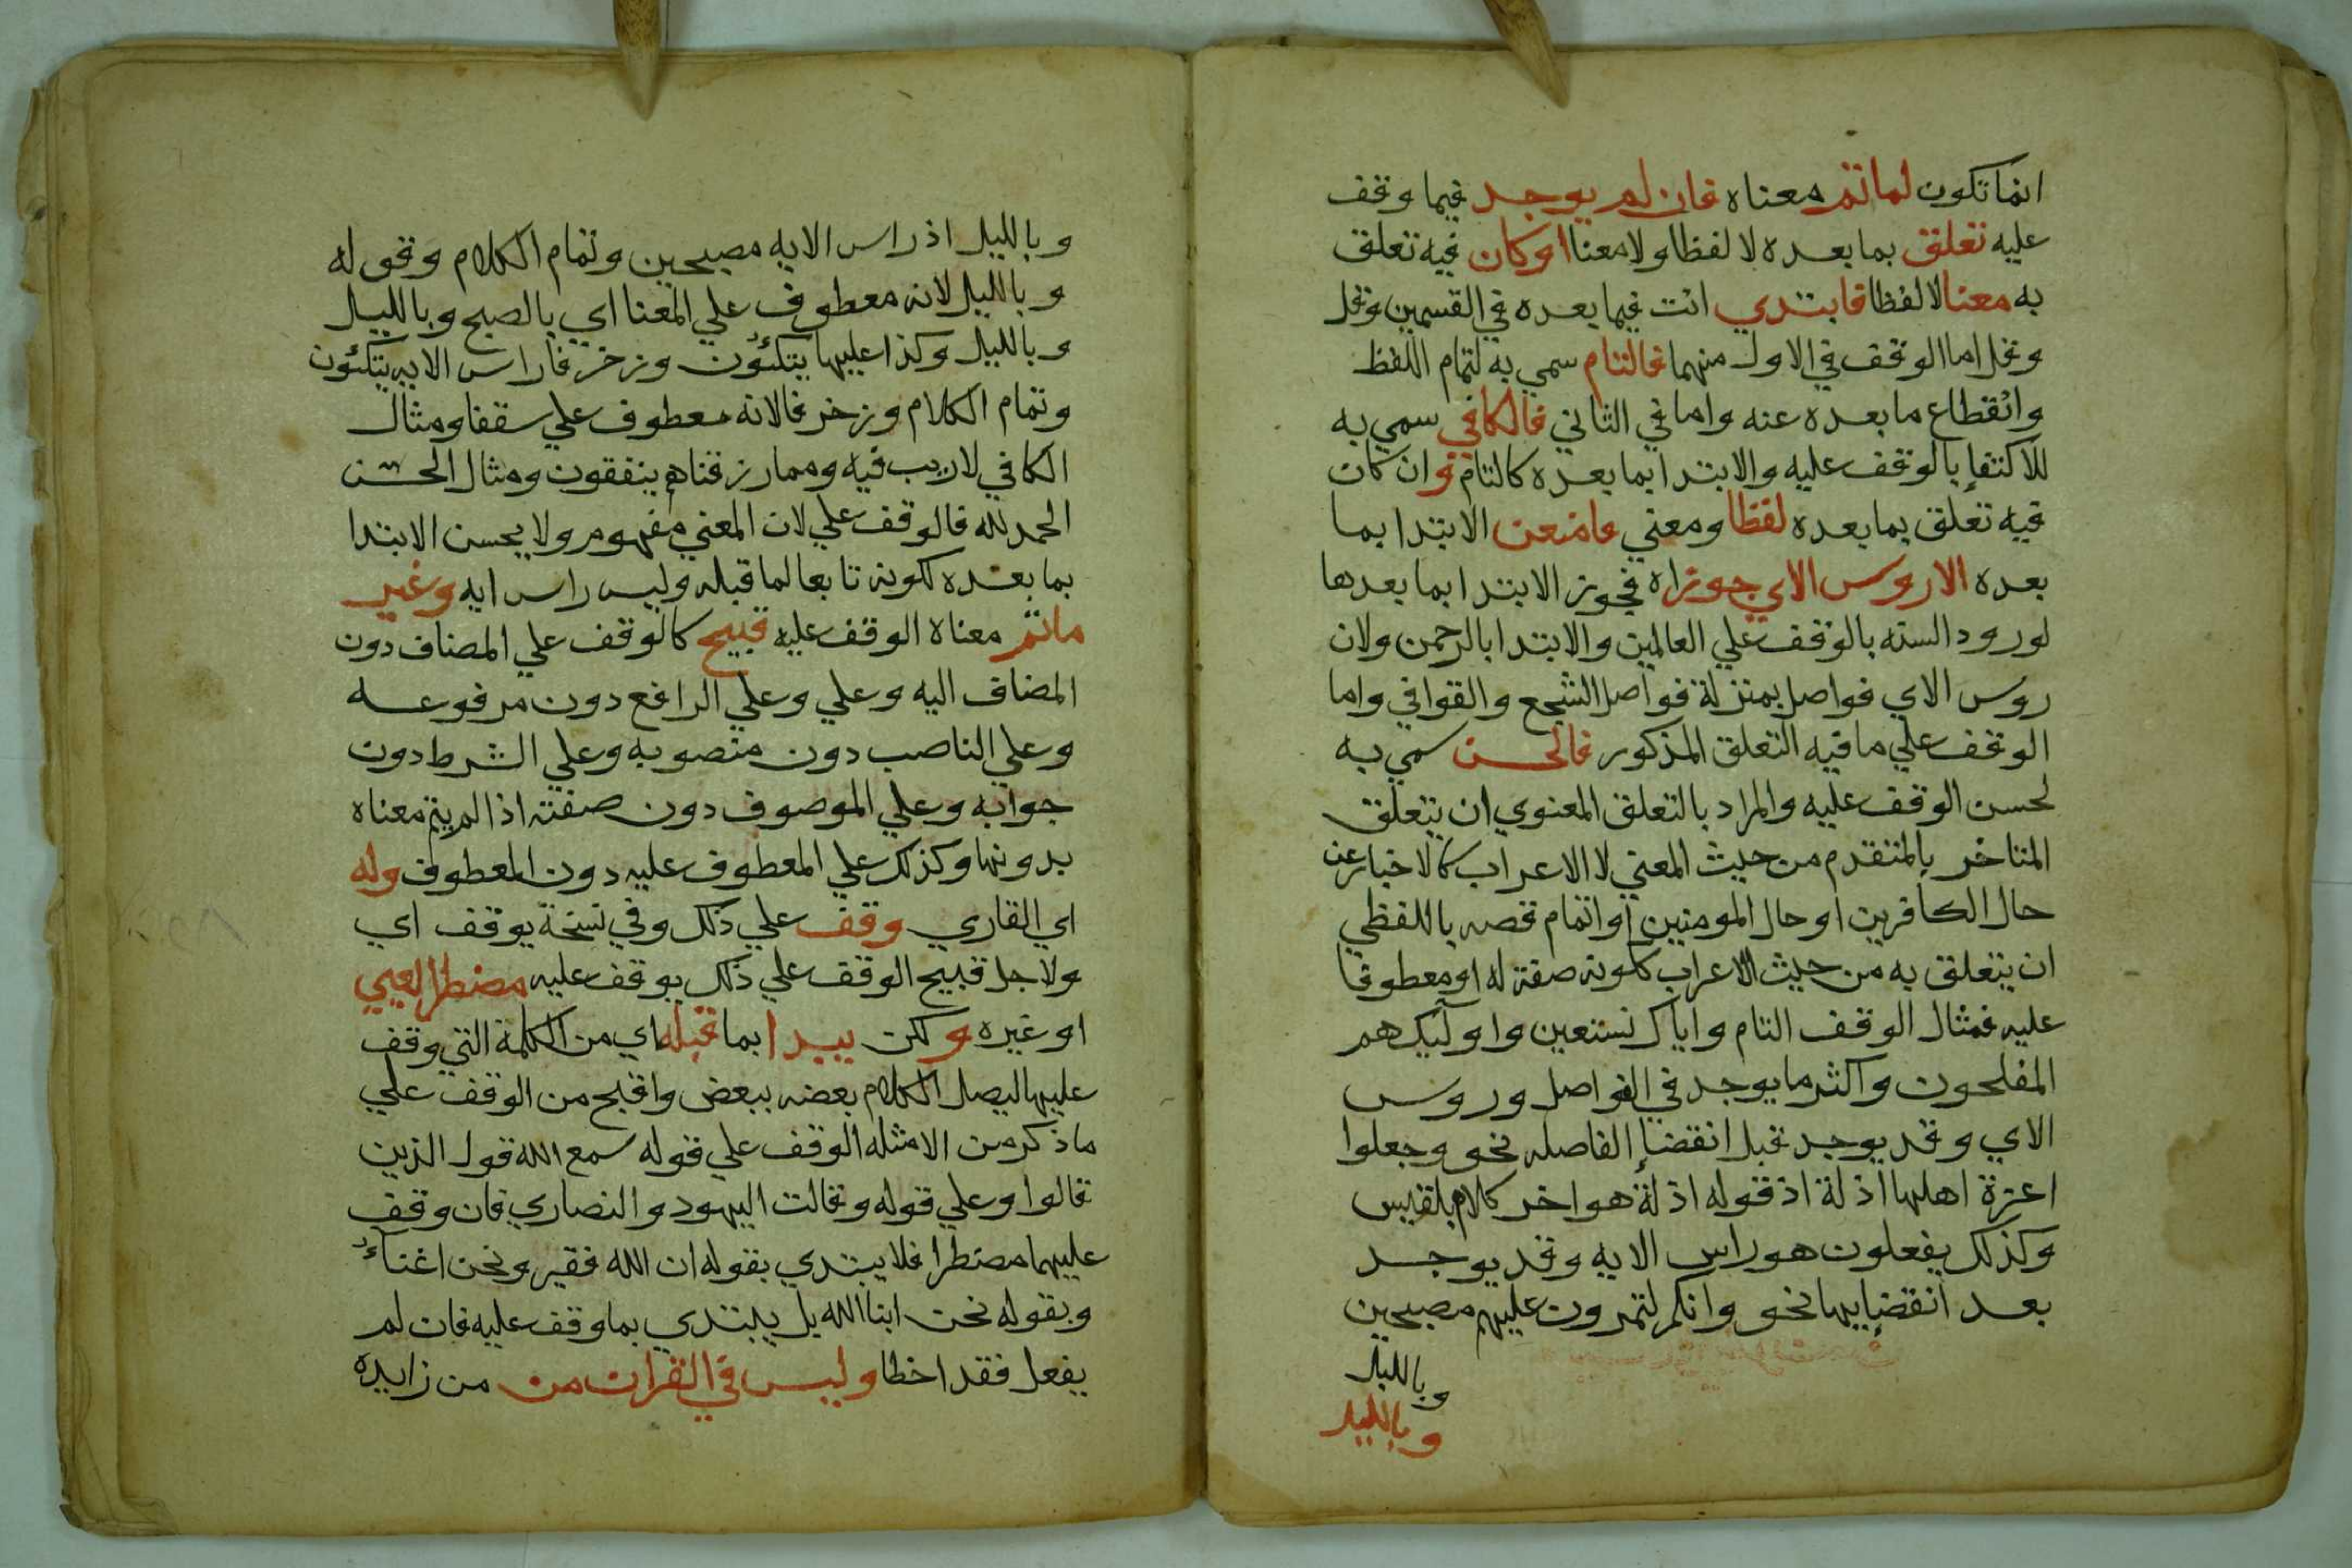 انما تكون لما تم معناه فان لم يوجد فيما وقف
عليه تعلق بما بعده لا لفظا ولا معنا او كان فيه تعلق
به معنا لا لفظا فابتدي انت فيما بعده في القسمين وقل
وقل اما الوقف في الاول منهما فالتام سمي به لتمام اللفظ
وانقطاع ما بعده عنه واما في الثاني فالكافي سمي به
للاكتفإ بالوقف عليه والابتدا بما بعده كالتام وان كان
فيه تعلق بما بعده لفظا ومعني فامنعن الابتدا بما
بعده الا روس الاي جوز اه فيجوز الابتدا بما بعدها
لورود السنه بالوقف علي العالمين والابتدا بالرحمن ولان
روس الاي فواصل بمنزلة فواصل الشجع والقوافي واما
الوقف علي ما فيه التعلق المذكور فالحسن سمي به
لحسن الوقف عليه والمراد بالتعلق المعنوي ان يتعلق
المتاخر بالمتقدم من حيث المعني لا الاعراب كالاخبار عن
حال الكافرين او حال المومنين او اتمام قصه باللفظي
ان يتعلق به من حيث الاعراب ككونه صفة له او معطوفا
عليه فمثال الوقف التام واياك نستعين واوآليك هم
المفلحون واكثر ما يوجد في الفواصل وروس
الاي وقد يوجد قبل انقضإ الفاصله نحو وجعلوا
اعزة اهلها اذلة اذ قوله اذلة هو اخر كلام بلقيس
وكذلك يفعلون هو راس الايه وقد يوجد
بعد انقضإيها نحو وانكم لتمرون عليهم مصبحين
وبالليل
وبالليل
وبالليل اذ راس الايه مصبحين وتمام الكلام وقوله
وبالليل لانه معطوف علي المعنا اي بالصبح وبالليل
وبالليل وكذا عليها يتكئون وزخرفا راس الايه يتكئون
وتمام الكلام وزخرفا لانه معطوف علي سقفا ومثال
الكافي لا ريب فيه ومما رزقناهم ينفقون ومثال الحسن
الحمد لله فالوقف علي لان المعني مفهوم ولا يحسن الابتدا
بما بعده لكونه تابعا لما قبله وليس راس ايه وغير
ما تم معناه الوقف عليه قبيح كالوقف علي المضاف دون
المضاف اليه وعلي وعلي الرافع دون مرفوعه
وعلي الناصب دون منصوبه وعلي الشرط دون
جوابه وعلي الموصوف دون صفته اذا لم يتم معناه
بدونها وكذلك علي المعطوف عليه دون المعطوف وله
اي القاري وقف علي ذلك وفي نسخة يوقف اي
ولاجل قبيح الوقف علي ذلك يوقف عليه مضطرا لعيي
او غيره ولكن يبدا بما قبله اي من الكلمة التي وقف
عليها ليصل الكلام بعضه ببعض واقبح من الوقف علي
ما ذكر من الامثله الوقف علي قوله سمع الله قول الذين
قالوا وعلي قوله وقالت اليهود والنصاري فان وقف
عليهما مضطرا فلا يبتدي بقوله ان الله فقير ونحن اغنيآء
وبقوله نحن ابنا الله بل يبتدي بما وقف عليه فان لم
يفعل فقد اخطا وليس في القران من من زايده